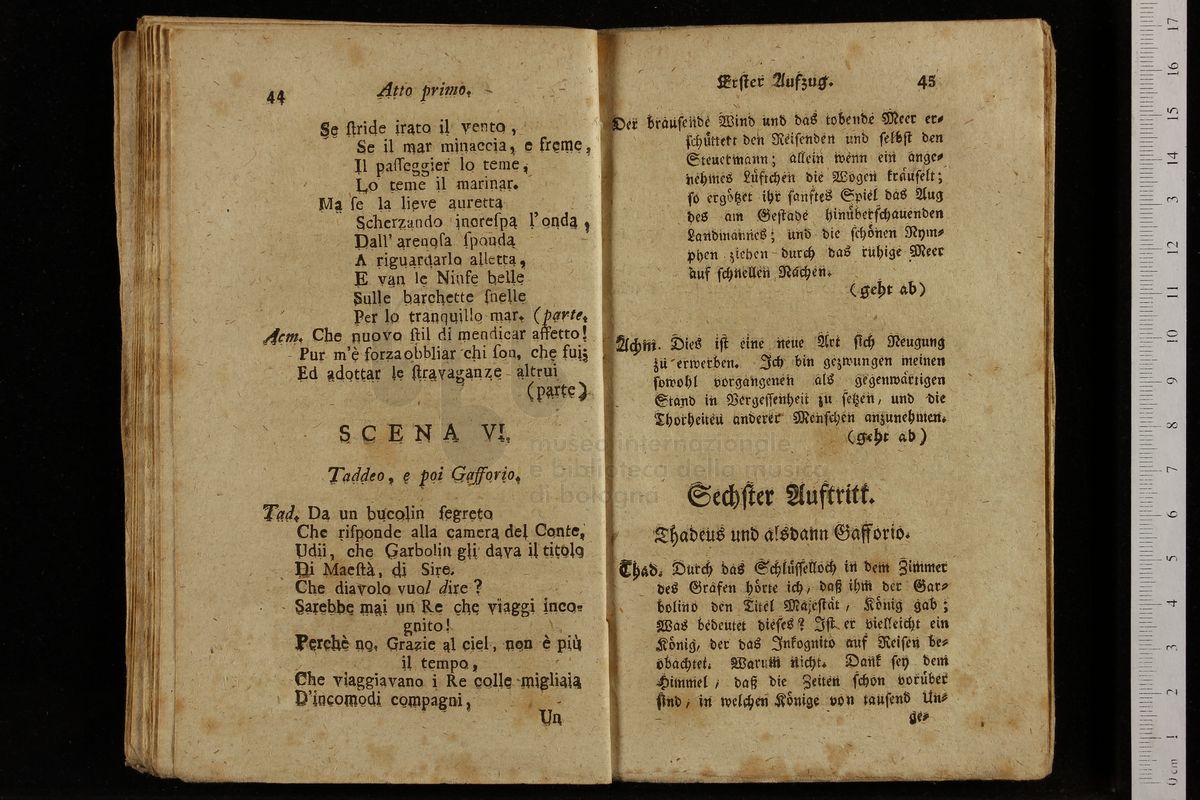 44
Atto primo.
Se ſtride irato il vento,
Se il mar minaccia, e freme,
Il paſſeggier lo teme,
Lo teme il marinar.
Ma ſe la lieve auretta
Scherzando increſpa l'onda,
Dall' arenoſa ſponda
A riguardarlo alletta,
E van le Ninfe belle
Sulle barchette ſnelle
Per lo tranquillo mar. (parte.
Acm. Che nuovo ſtil di mendicar affetto!
Pur m'è forza obbliar chi ſon, che fui;
Ed adottar le ſtravaganze altrui
(parte)
SCENA VI.
Taddeo, e poi Gafforio.
Tad. Da un bucolin ſegreto
Che riſponde alla camera del Conte,
Udii, che Garbolin gli dava il titolo
Di Maeſtà, di Sire.
Che diavolo vuol dire?
Sarebbe mai un Re che viaggi inco-
gnito!
Perchè no. Grazie al ciel, non è più
il tempo,
Che viaggiavano i Re colle migliaia
D'incomodi compagni,
Un
Erſter Aufzug.
45
Der brauſende Wind und das tobende Meer er-
ſchüttert den Reiſenden und ſelbſt den
Steuermann; allein wenn ein ange-
nehmes Lüftchen die Wogen kräuſelt;
ſo ergötzet ihr ſanftes Spiel das Aug
des am Geſtade hinüberſchauenden
Landmannes; und die ſchönen Nym-
phen ziehen durch das ruhige Meer
auf ſchnellen Nachen.
(geht ab)
Achm. Dies iſt eine neue Art ſich Neugung
zu erwerben. Ich bin gezwungen meinen
ſowohl vorgangenen als gegenwärtigen
Stand in Vergeſſenheit zu ſetzen, und die
Thorheiten anderer Menſchen anzunehmen.
(geht ab)
Sechſter Auftritt.
Thadeus und alsdann Gafforio.
Thad. Durch das Schlüſſelloch in dem Zimmer
des Grafen hörte ich, daß ihm der Gar-
bolino den Titel Majeſtät, König gab;
Was bedeutet dieſes? Iſt er vielleicht ein
König, der das Inkognito auf Reiſen be-
obachtet. Warum nicht. Dank ſey dem
Himmel, daß die Zeiten ſchon vorüber
ſind, in welchen Könige von tauſend Un-
ge-
museo internazionale
e biblioteca della musica
di bologna
0 cm 1 2 3 4 5 6 7 8 9 10 11 12 13 14 15 16 17